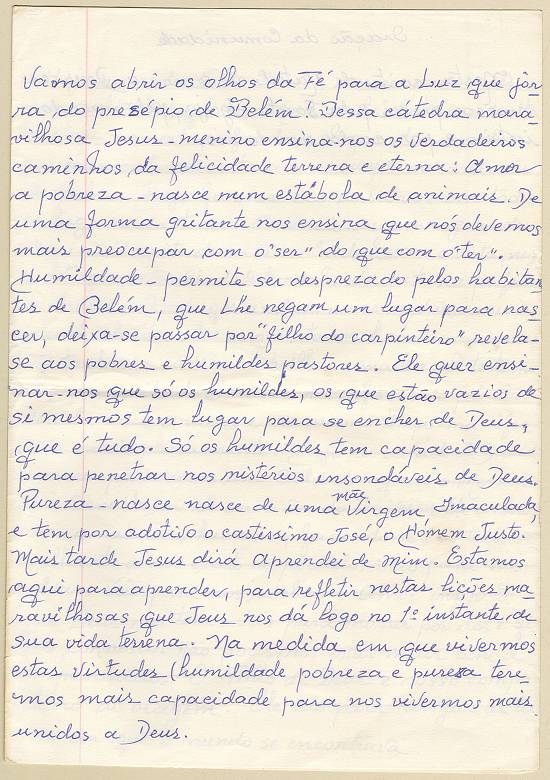 Vamos abrir os olhos da Fé para a Luz que jor-
ra do presépio de Belém! Dessa cátedra mara-
vilhosa Jesus-menino ensina-nos os verdadeiros
caminhos da felicidade terrena e eterna: Amor
a pobreza - nasce num estábola de animais. De
uma forma gritante nos ensina que nós devemos
mais preocupar com o "ser" do que com o "ter".
Humildade - permite ser desprezado pelos habitan-
tes de Belém, que Lhe negam um lugar para nas-
cer, deixa-se passar por "filho do carpinteiro" revela-
se aos pobres e humildes pastores. Ele quer ensi-
nar-nos que só os humildes, os que estão vazios de
si mesmos tem lugar para se encher de Deus,
que é tudo. Só os humildes tem capacidade
para penetrar nos mistérios insondáveis de Deus.
Pureza - nasce nasce de uma mãe Virgem Imaculada,
e tem por adotivo o castíssimo José, o Homem Justo.
Mais tarde Jesus dirá aprendei de mim. Estamos
aqui para aprender, para refletir nestas lições ma-
ravilhosas que Jeus nos dá logo no 1º instante de
sua vida terrena. Na medida em que vivermos
estas virtudes (humildade pobreza e pureza tere-
mos mais capacidade para nos vivermos mais
unidos a Deus.